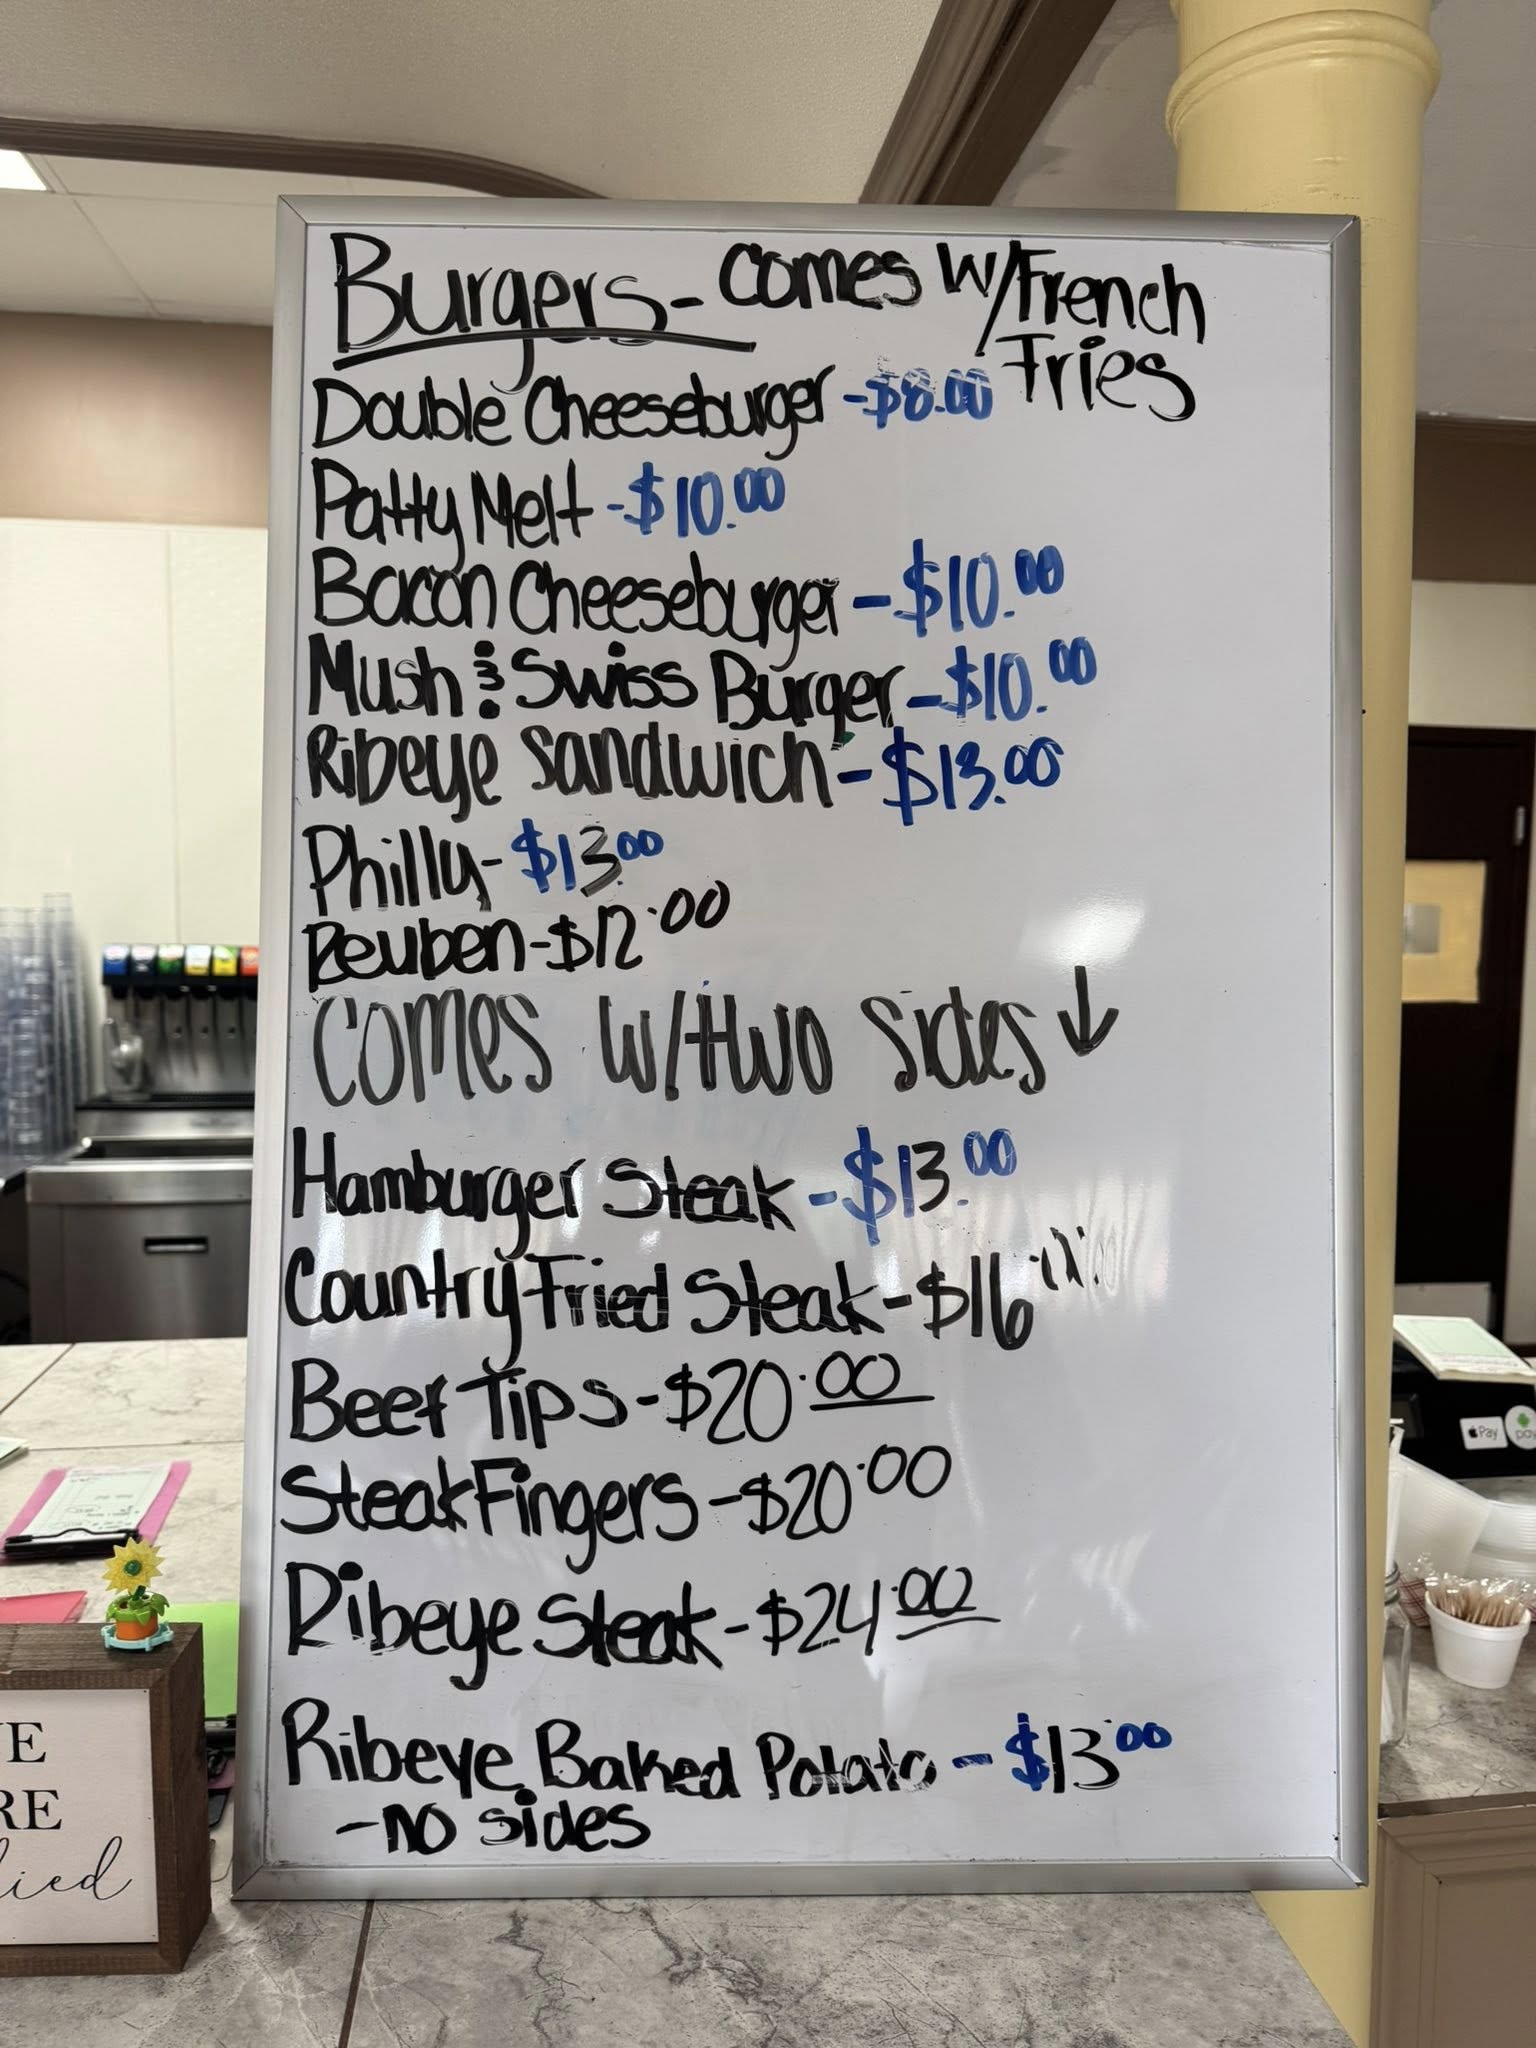 Burgers - Comes w/French
Fries
Double Cheeseburger - $8.00
Patty Melt - $10.00
Bacon Cheeseburger - $10.00
Mush & Swiss Burger - $10.00
Ribeye Sandwich - $13.00
Philly - $13.00
Reuben - $12.00
Comes w/two sides ↓
Hamburger Steak - $13.00
Country Fried Steak - $16
Beef Tips - $20.00
Steak Fingers - $20.00
Ribeye Steak - $24.00
Ribeye Baked Potato - $13.00
- no sides
Pay
pay